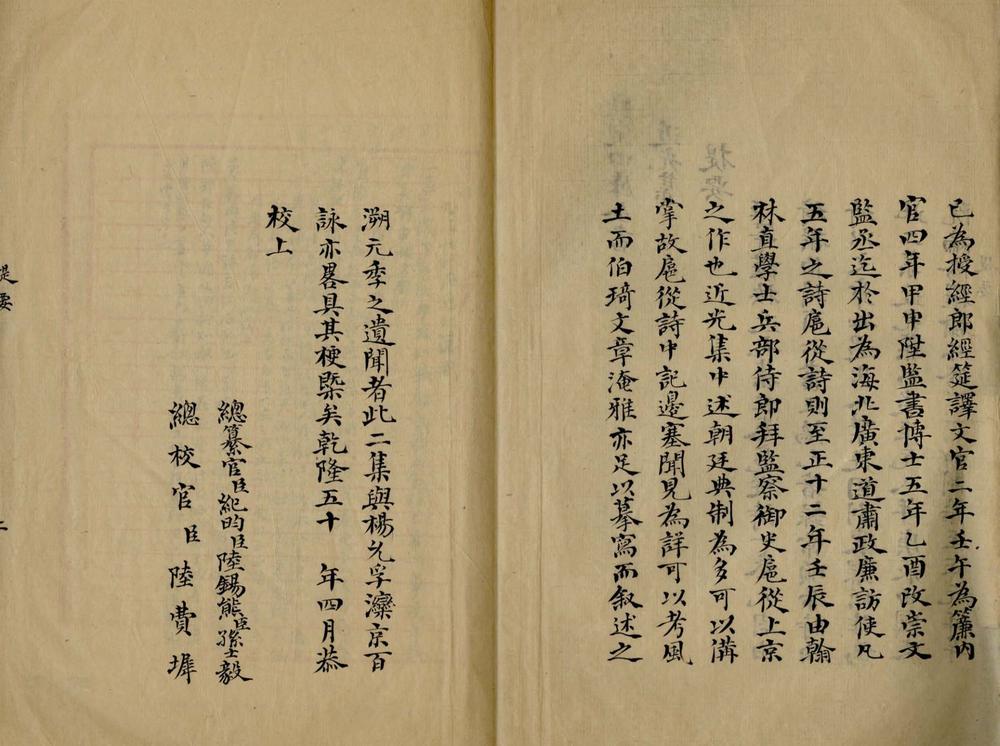 已為授經郎經筵譯文官二年壬午為簾內
官四年甲申陞監書博士五年乙酉改崇文
監丞迄於出為海北廣東道肅政廉訪使凡
五年之詩扈從詩則至正十二年壬辰由翰
林直學士兵部侍郎拜監察御史扈從上京
之作也近光集中述朝廷典制為多可以溝
掌故扈從詩中記邊塞聞見為詳可以考風
土而伯琦文章淹雅亦足以摹寫而叙述之
溯元季之遺聞者此二集與楊允孚灤京百
詠亦畧具其梗槩矣乾隆五十 年四月恭
校上
總纂官臣紀昀臣陸錫熊臣孫士毅
總校官臣陸費墀
提要
二